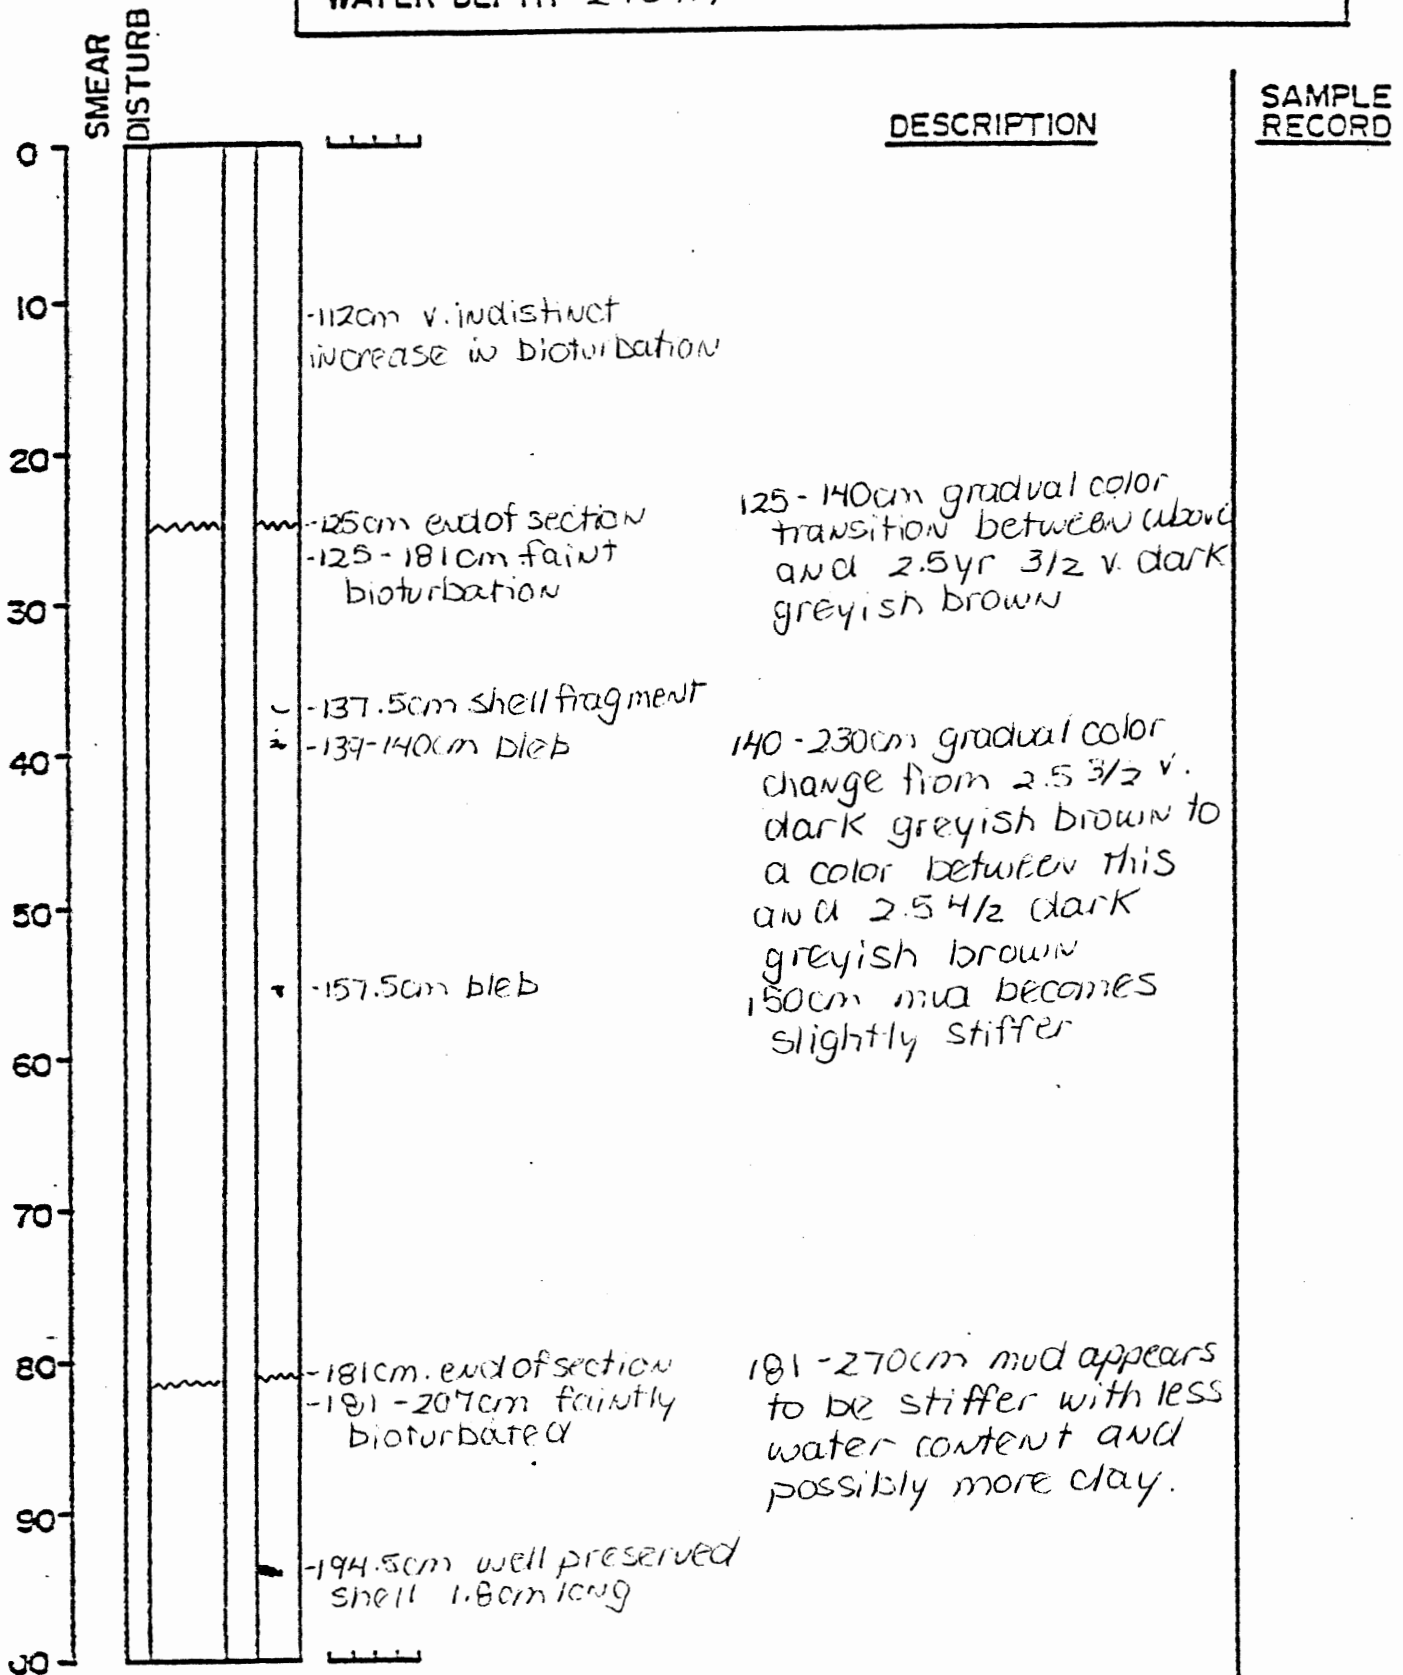 WATER DEPTH
SMEAR
DISTURB
DESCRIPTION
SAMPLE
RECORD
0
10
20
30
40
50
60
70
80
90
-112cm v. indistinct
increase in bioturbation
-125cm end of section
-125-181cm faint
bioturbation
-137.5cm shell fragment
-139-140cm bleb
-157.5cm bleb
-181cm. end of section
-181-207cm faintly
bioturbated
-194.5cm well preserved
shell 1.8cm long
125-140cm gradual color
transition between above
and 2.5yr 3/2 v. dark
greyish brown
140-230cm gradual color
change from 2.5 3/2 v.
dark greyish brown to
a color between this
and 2.5 4/2 dark
greyish brown
150cm mud becomes
slightly stiffer
181-270cm mud appears
to be stiffer with less
water content and
possibly more clay.